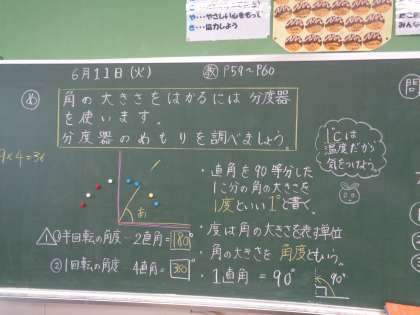 や・・・やさしい心をもって
き・・・協力しよう
6月11日(火)
教 P59～P60
め
角の大きさをはかるには 分度器
を使います。
分度器のめもりを調べましょう。
1℃は
温度だから
気をつけよう。
問
9×4=36
・直角を90等分した
1こ分の角の大きさを
1度といい1°と書く。
あ
・度は角の大きさを表す単位
・角の大きさを 角度ともいう。
・1直角=90°
90°
①半回転の角度…2直角=180°
②1回転の角度 4直角=360°